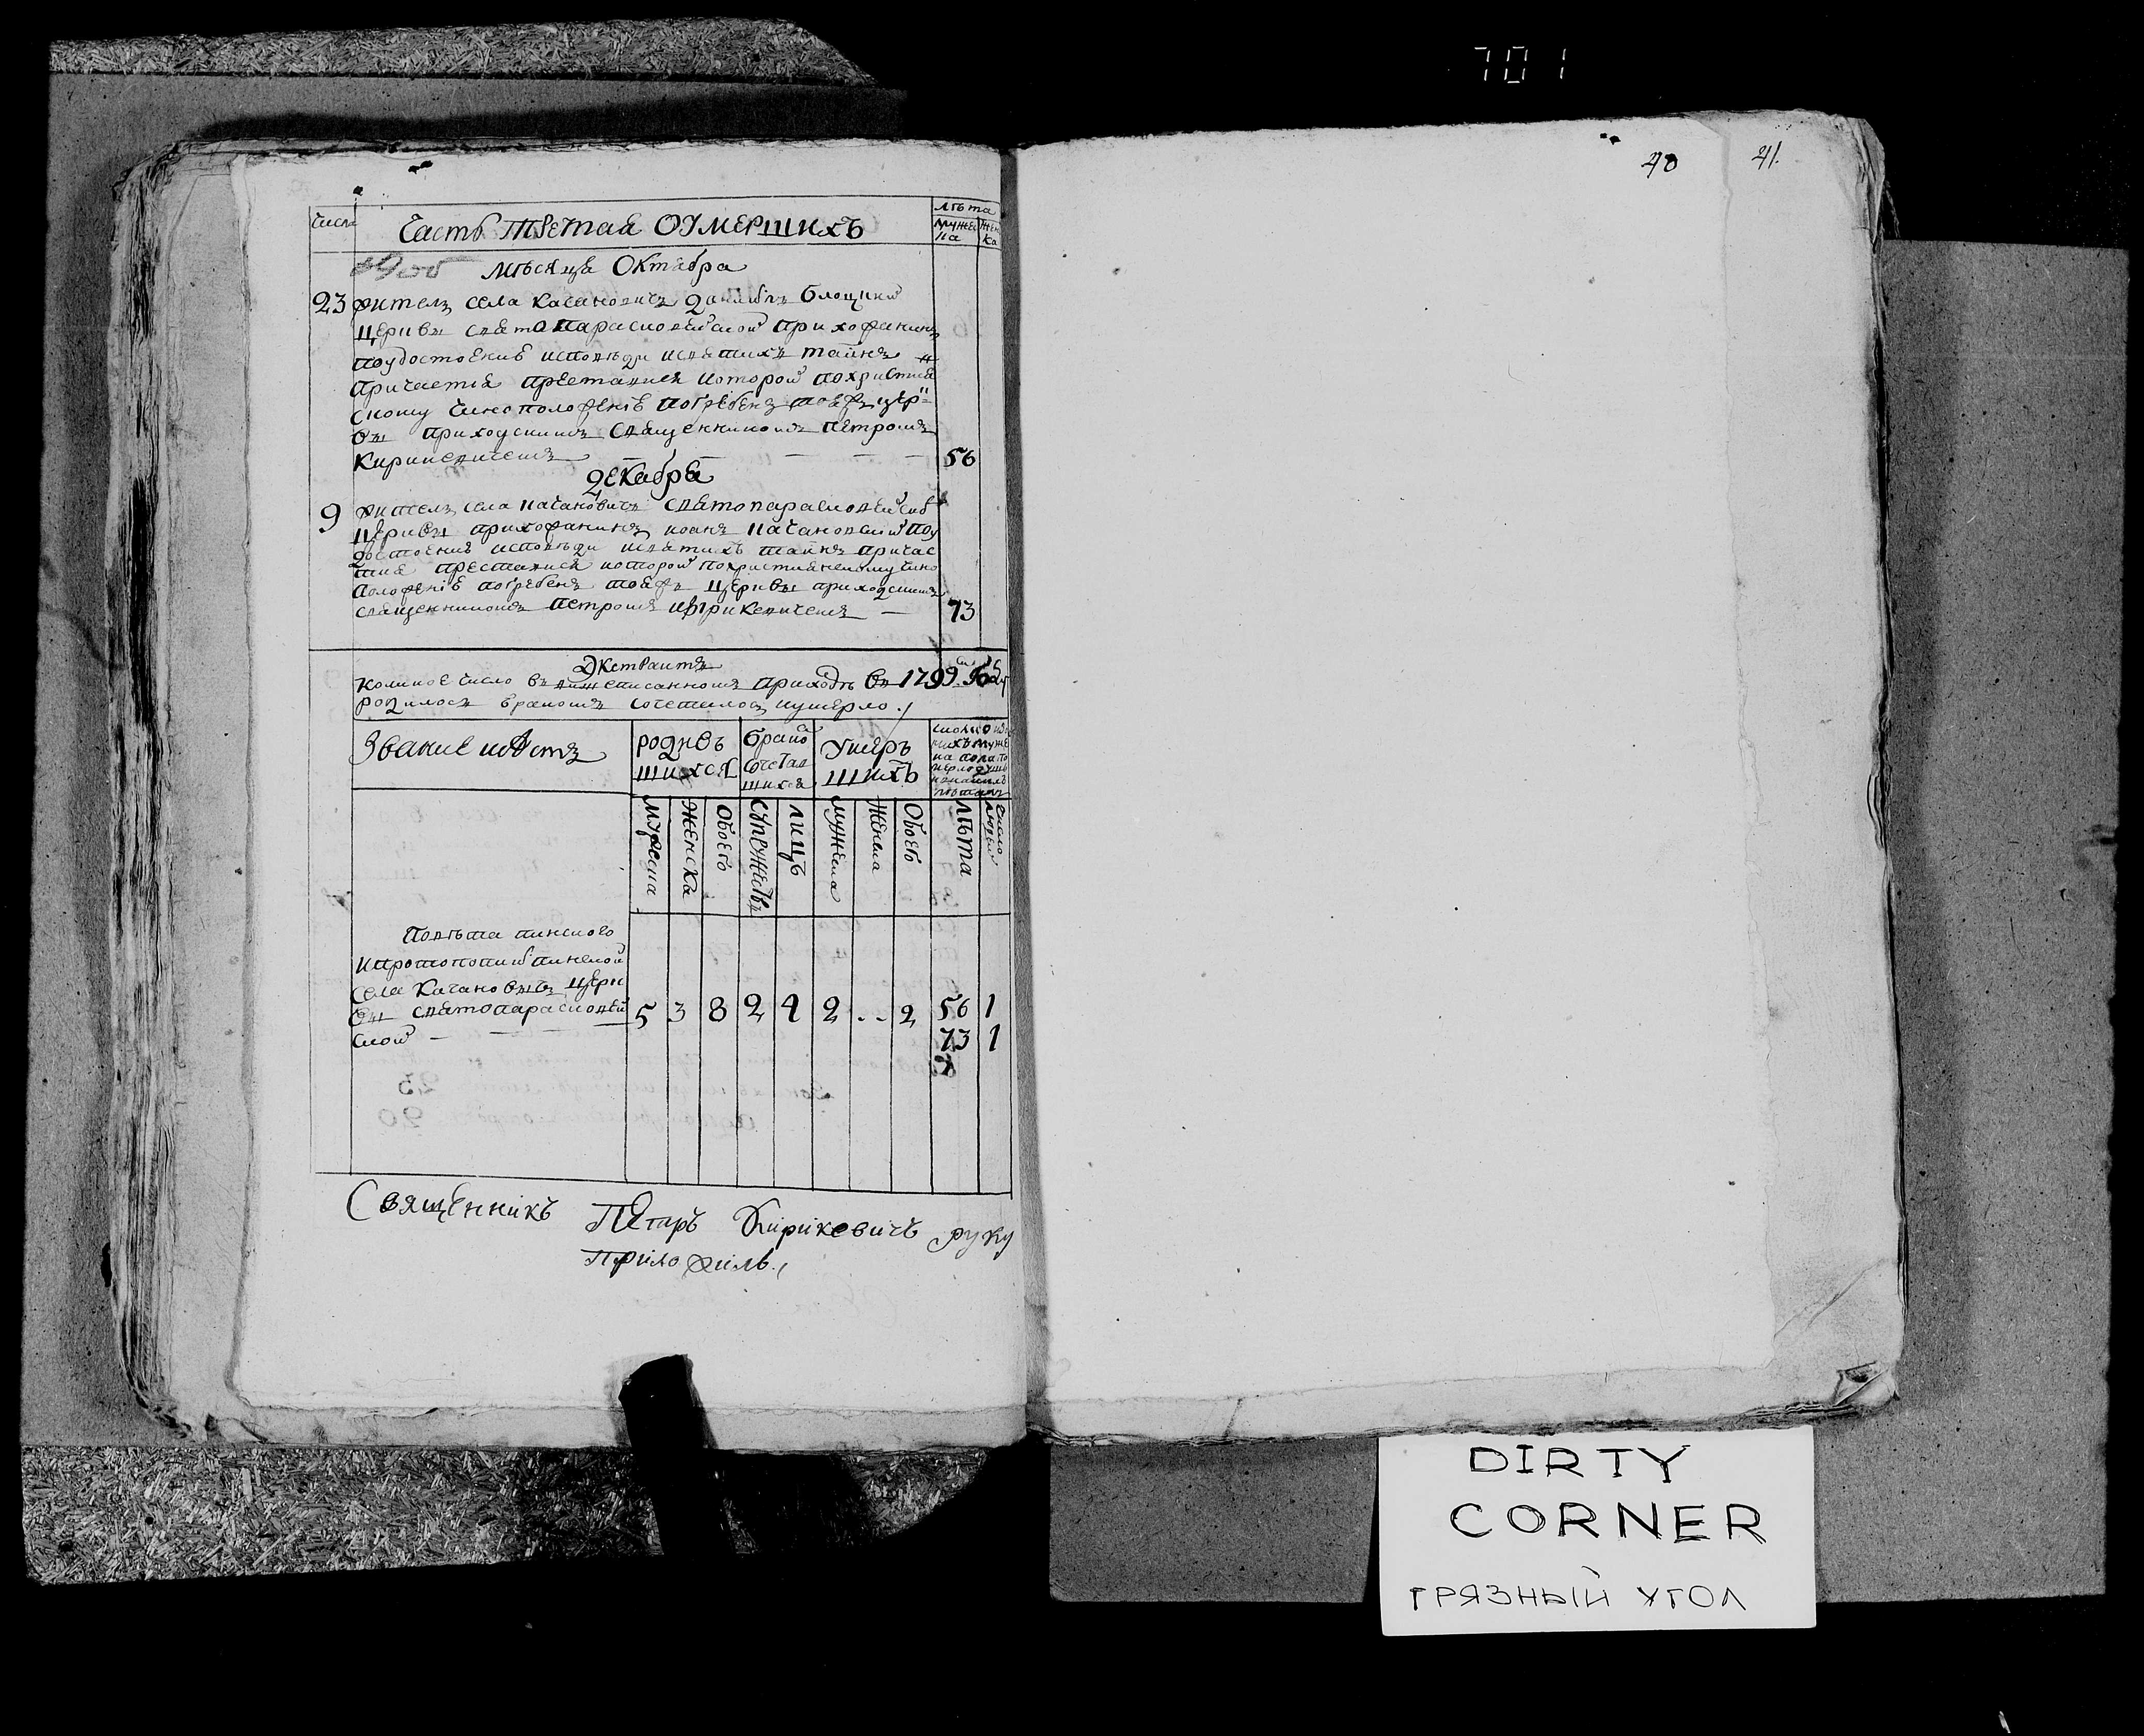 701
40 41.
числа Часть Третая ОУМЕРШИХЪ лѣта
мужеска женска
Мѣсяца Октабра
23 жителъ села Качановичъ Даниилъ Блоцкий
церквы святопарасковейской прихожанинъ
поудостоение исповѣди исвятихъ тайнъ и
причастия преставися которой похристия
скому чиноположениѣ погребенъ тояжъ цер
вы приходскимъ священникомъ Петромъ
Кирикевичемъ — — — — 56
Декабра
9 жителъ села Качановичъ святопарасковейской
церквы прихожанинъ иоанъ Качановский поу
достоение исповѣди исвятихъ тайнъ причас
тия преставися которой похристиянскому чино
положениѣ погребенъ тояжъ церквы приходскимъ
священникомъ Петромъ Кирикевичемъ — 73
Экстрактъ
коликое число въ нижеписанномъ приходѣ въ 1799.
родилося бракомъ сочеталось иумерло.
Звание мѣстъ родив брако Умер
шихся сочетав шихъ
шихся
мужеска женска Обоего супружествъ лицъ мужеска женска Обоего лѣта число
Повѣта пинского
ипротопопии пинской
села Качановичъ церк
вы святопарасковей 5 3 8 2 4 2 .. 2 56 1
ской — — — 73 1
Священникъ Петръ Кирикевичъ руку
приложилъ.
DIRTY
CORNER
ГРЯЗНЫЙ УГОЛ